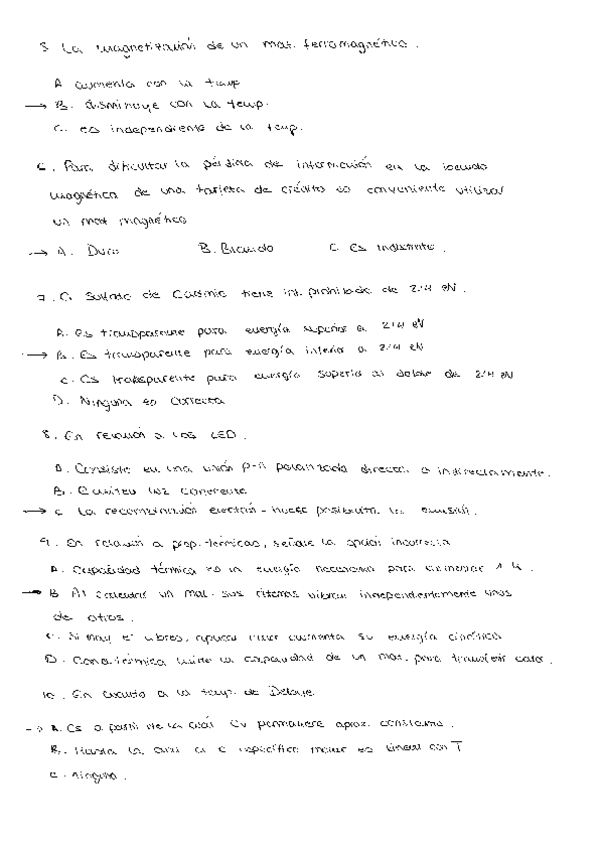 5. La magnetización de un mat. ferromagnético.
A. aumenta con la temp
→ B. disminuye con la temp.
C. es independiente de la temp.
6. Para dificultar la pérdida de información en la banda
magnética de una tarjeta de crédito es conveniente utilizar
un mat magnético
→ A. Duro B. Blando C. Es indistinto.
7. El Sulfuro de Cadmio tiene int. prohibida de 2'4 eV.
A. Es transparente para energía superior a 2'4 eV
→ B. Es transparente para energía inferior a 2'4 eV
C. Es transparente para energía superior al doble de 2'4 eV
D. Ninguna es correcta
8. En relación a los LED.
A. Consiste en una unión p-n polarizada directa o indirectamente.
B. Emiten luz coherente
→ C. La recombinación electrón-hueco la emisión.
9. En relación a prop. térmicas, señale la opción incorrecta
A. Capacidad térmica es la energía necesaria para aumentar 1 K.
→ B. Al calentar un mat. sus átomos vibran independientemente unos
de otros.
C. Si hay e⁻ libres, aumenta su energía cinética
D. Cond. térmica mide la capacidad de un mat. para transferir calor.
10. En cuanto a la temp. de Debye
→ A. Es a partir de la cual Cv permanece aprox. constante.
B. Hasta la cual el C específico molar es lineal con T
C. ninguna.